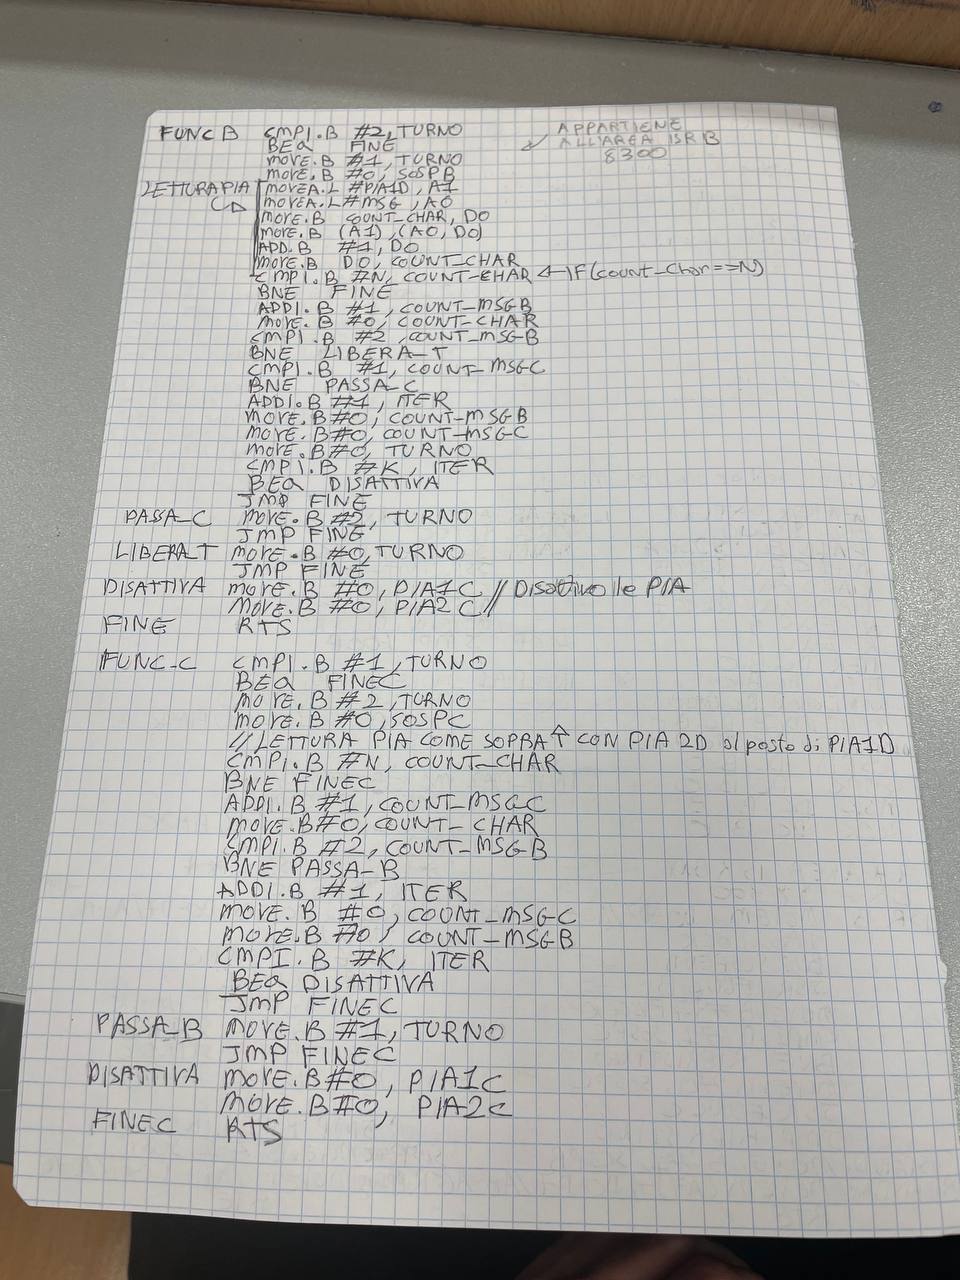 FUNCB CMPI.B #2, TURNO
BEQ FINE
MOVE.B #1, TURNO
MOVE.B #0, SOSPB
APPARTIENE
ALL'AREA ISR B
8300
LETTURA PIA MOVEA.L #PIA1D, A1
MOVEA.L #MSG, A0
MOVE.B COUNT_CHAR, D0
MOVE.B (A1), (A0, D0)
ADD.B #1, D0
MOVE.B D0, COUNT_CHAR
CMPI.B #N, COUNT_CHAR ← IF (COUNT_CHAR == N)
BNE FINE
ADDI.B #1, COUNT_MSGB
MOVE.B #0, COUNT_CHAR
CMPI.B #2, COUNT_MSGB
BNE LIBERA_T
CMPI.B #1, COUNT_MSGC
BNE PASSA_C
ADDI.B #1, ITER
MOVE.B #0, COUNT_MSGB
MOVE.B #0, COUNT_MSGC
MOVE.B #0, TURNO
CMPI.B #K, ITER
BEQ DISATTIVA
JMP FINE
PASSA_C MOVE.B #2, TURNO
JMP FINE
LIBERA_T MOVE.B #0, TURNO
JMP FINE
DISATTIVA MOVE.B #0, PIA1C // Disattivo le PIA
MOVE.B #0, PIA2C //
FINE RTS
FUNC_C CMPI.B #1, TURNO
BEQ FINEC
MOVE.B #2, TURNO
MOVE.B #0, SOSPC
// LETTURA PIA COME SOPRA ↑ CON PIA 2D al posto di PIA1D
CMPI.B #N, COUNT_CHAR
BNE FINEC
ADDI.B #1, COUNT_MSGC
MOVE.B #0, COUNT_CHAR
CMPI.B #2, COUNT_MSGB
BNE PASSA_B
ADDI.B #1, ITER
MOVE.B #0, COUNT_MSGC
MOVE.B #0, COUNT_MSGB
CMPI.B #K, ITER
BEQ DISATTIVA
JMP FINEC
PASSA_B MOVE.B #1, TURNO
JMP FINEC
DISATTIVA MOVE.B #0, PIA1C
MOVE.B #0, PIA2C
FINEC RTS